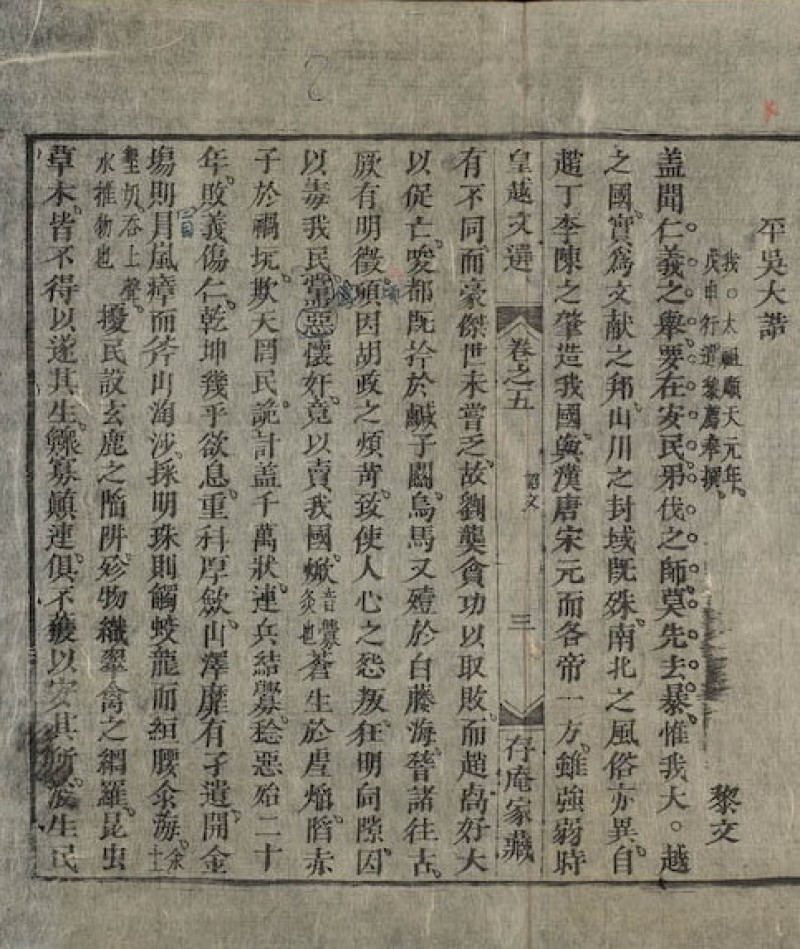 平吳大誥
我。太祖順天元年。
戊申行遣黎廌奉撰。
黎文
盖聞仁義之舉要在安民弔伐之師莫先去暴惟我大。越
之國實爲文献之邦山川之封域既殊南北之風俗亦異自
趙丁李陳之肇造我國與漢唐宋元而各帝一方雖強弱時
皇越文選
卷之五
誥文
三
存庵家藏
有不同而豪傑世未嘗乏故劉龑貪功以取敗而趙卨好大
以促亡唆都既擒於鹹子關烏馬又殪於白藤海嵇諸往古
厥有明徵頃因胡政之煩苛致使人心之怨叛狂明伺隙因
以毒我民黨惡懷奸竟以賣我國焮
音釁
灸也
蒼生於虐焰陷赤
子於禍坑欺天罔民詭計盖千萬狀連兵結釁稔惡殆二十
年敗義傷仁乾坤幾乎欲息重科厚歛山澤靡有孑遺開金
塲則冒嵐瘴而斧山淘沙採明珠則觸蛟龍而絙腰汆海
汆土
墾切吞上聲
水推物也
擾民設玄鹿之陷阱殄物織翠禽之網羅昆虫
草木皆不得以遂其生鰥寡顛連俱不獲以安其所浚生民